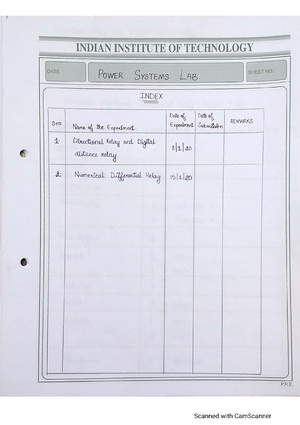 INDIAN INSTITUTE OF TECHNOLOGY
DATE
POWER SYSTEMS LAB
SHEET NO.
INDEX
S.no
Name of the Experiment
Date of Experiment
Date of Submission
REMARKS
1.
Directional Relay and Digital
distance relay
8/1/20
2.
Numerical Differential Relay
15/1/20
Scanned with CamScanner